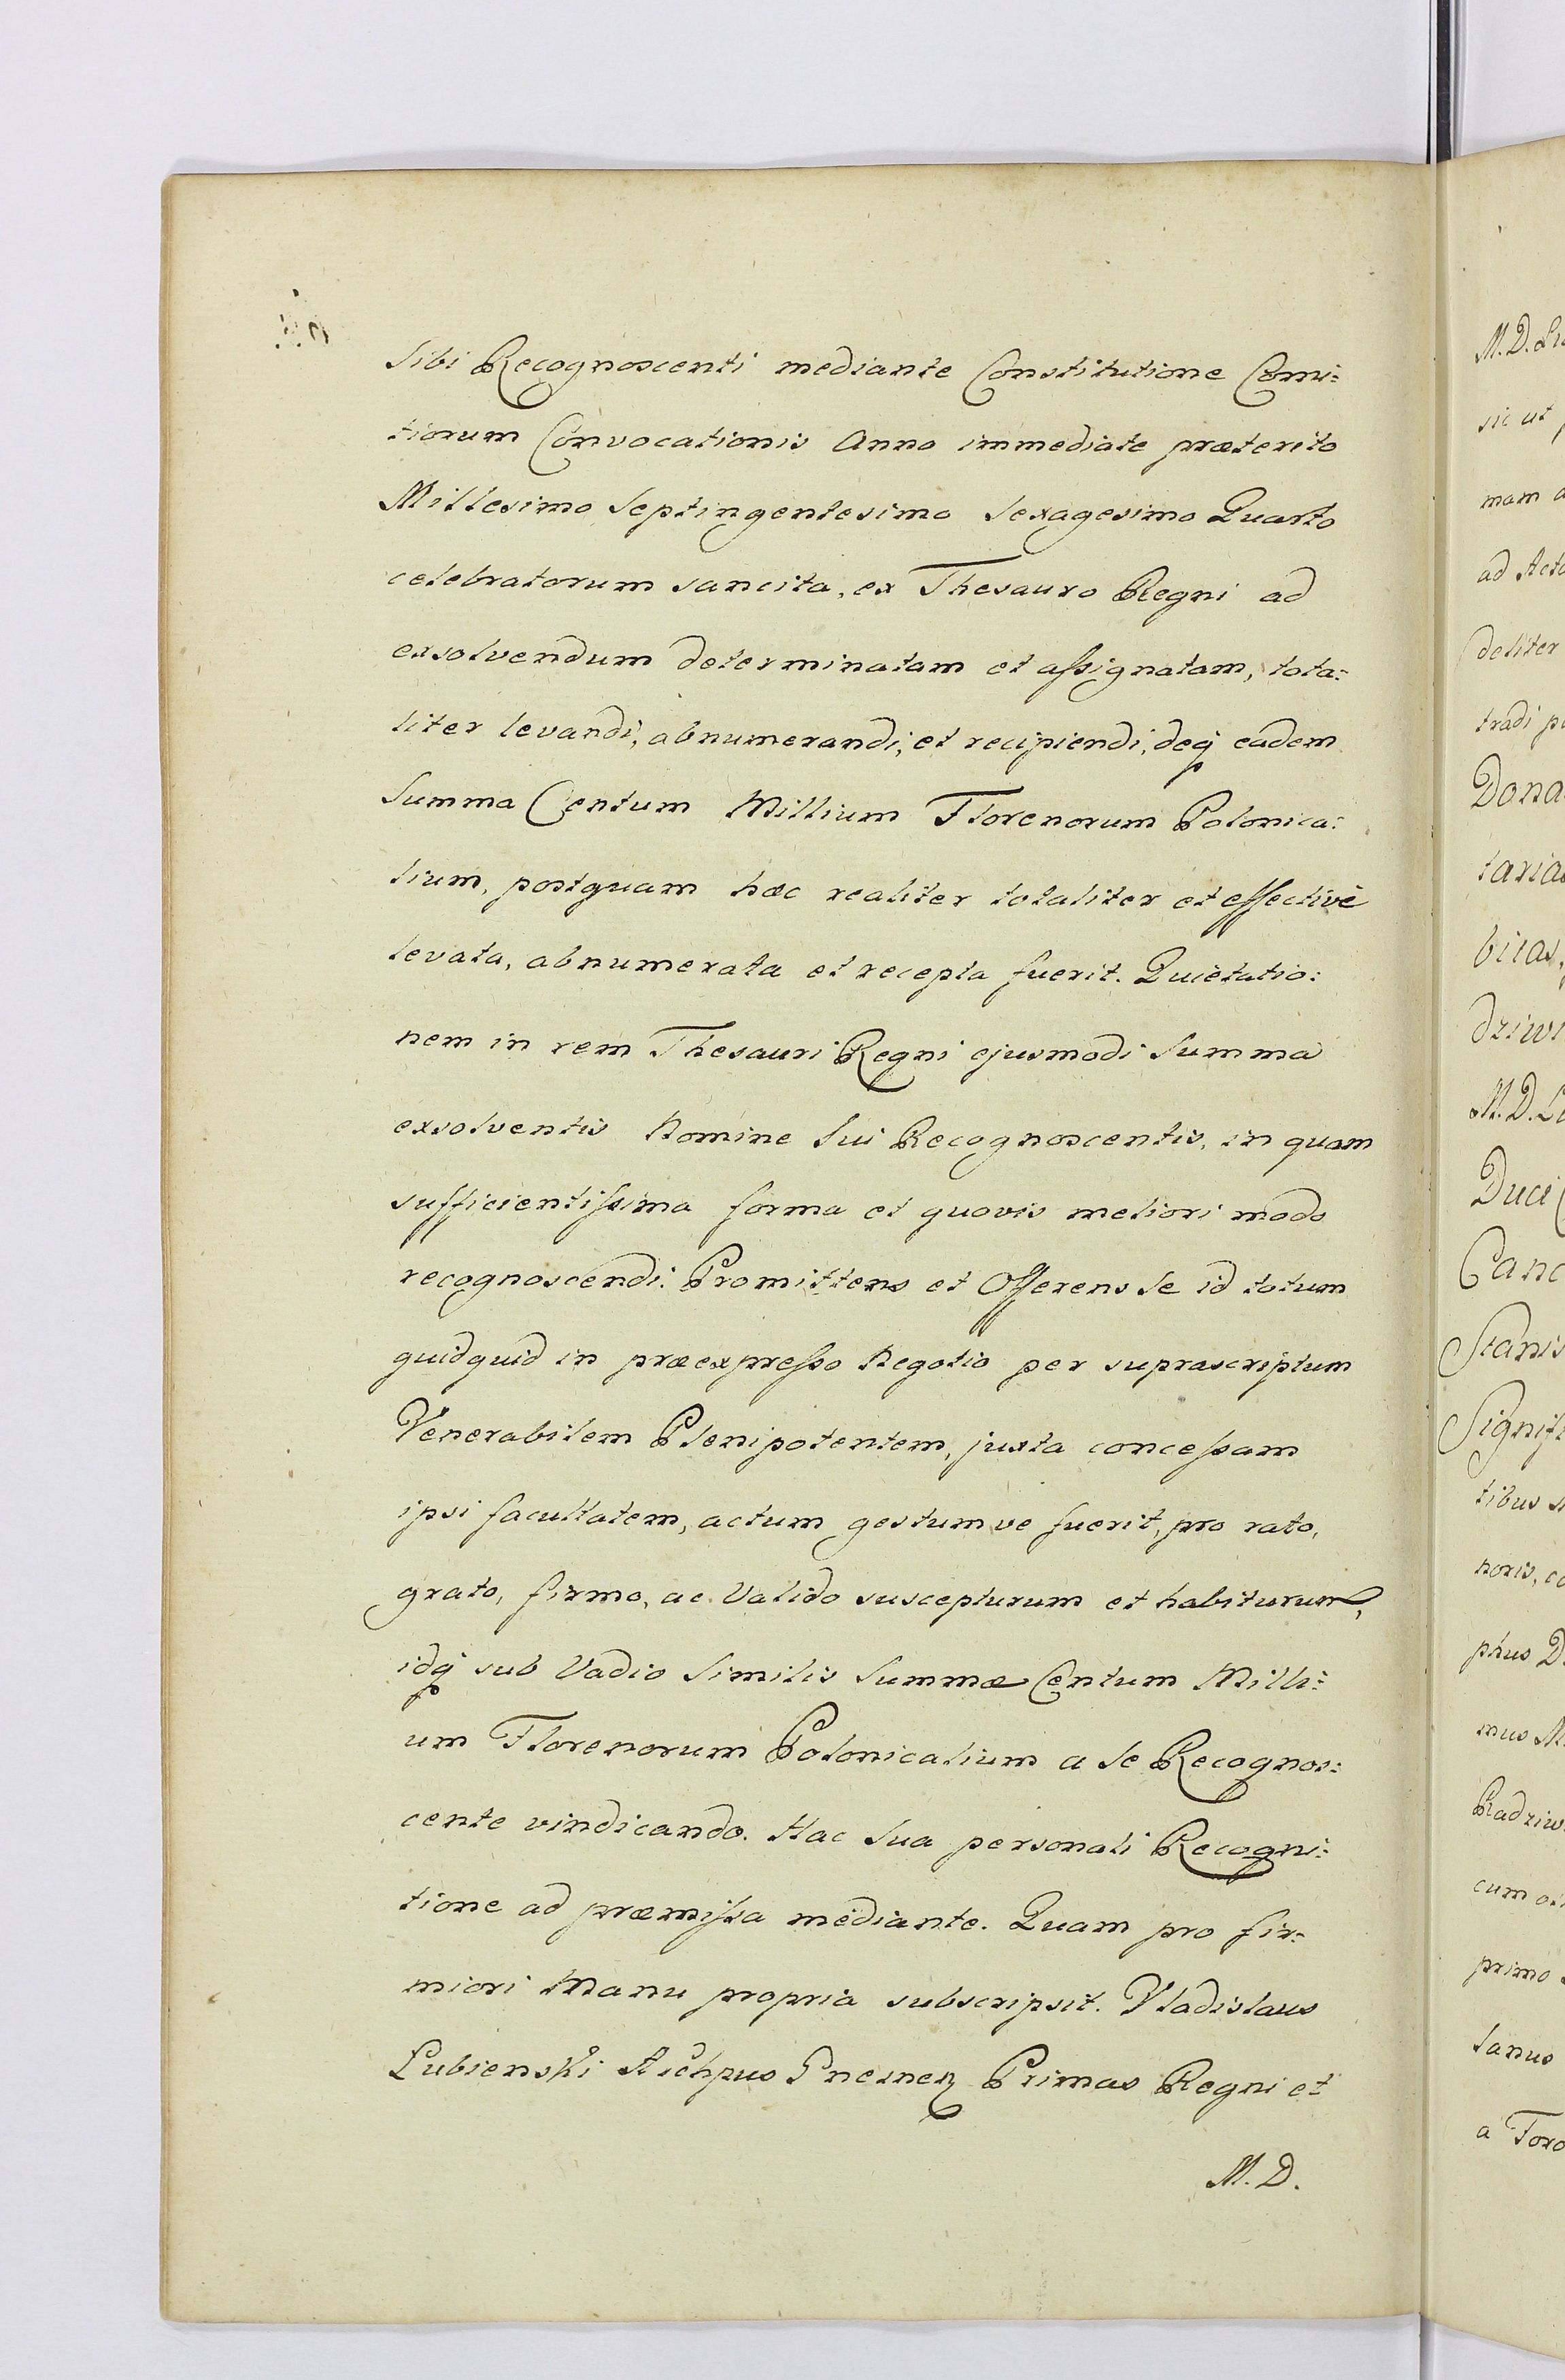 Sibi Recognoscenti mediante Constitutione Comi:
tiorum Convocationis Anno immediate præterito
Millesimo Septingentesimo Sexagesimo Quarto
celebratorum sancita, ex Thesauro Regni ad
exsolvendum determinatam et assignatam, tota:
liter levandi, abnumerandi, et recipiendi, deq́ eadem
Summa Centum Millium Florenorum Polonica:
lium, postquam hæc realiter totaliter et effectivè
levata, abnumerata et recepta fuerit. Quietatio:
nem in rem Thesauri Regni ejusmodi Summa
exsolventis Nomine Sui Recognoscentis, in quam
sufficientissima forma et quovis meliori modo
recognoscendi. Promittens et Offerens Se id totum
quidquid in præexpresso Negotio per suprascriptum
Venerabilem Plenipotentem, juxta concessam
ipsi facultatem, actum gestumve fuerit, pro rato,
grato, firmo, ac Valido suscepturum et habiturum,
idq́ sub Vadio Similis Summæ Centum Milli:
um Florenorum Polonicalium a Se Recognos:
cente vindicando. Hac Sua personali Recogni:
tione ad præmissa mediante. Quam pro fir:
miori Manu propria subscripsit. Vladislaus
Lubienski Archpus Gnesnen Primas Regni et
M. D.
M. D. Li
sic ut p
mam a
ad Acta
deliter
tradi p
Dona
taria
bitas,
dziwi
M. D. Li
Duci
Canc
Stanis
Signifi
tibus
noris, co
phus D.
mus M.
Radziw
cum o
primo
lanus
a Toro